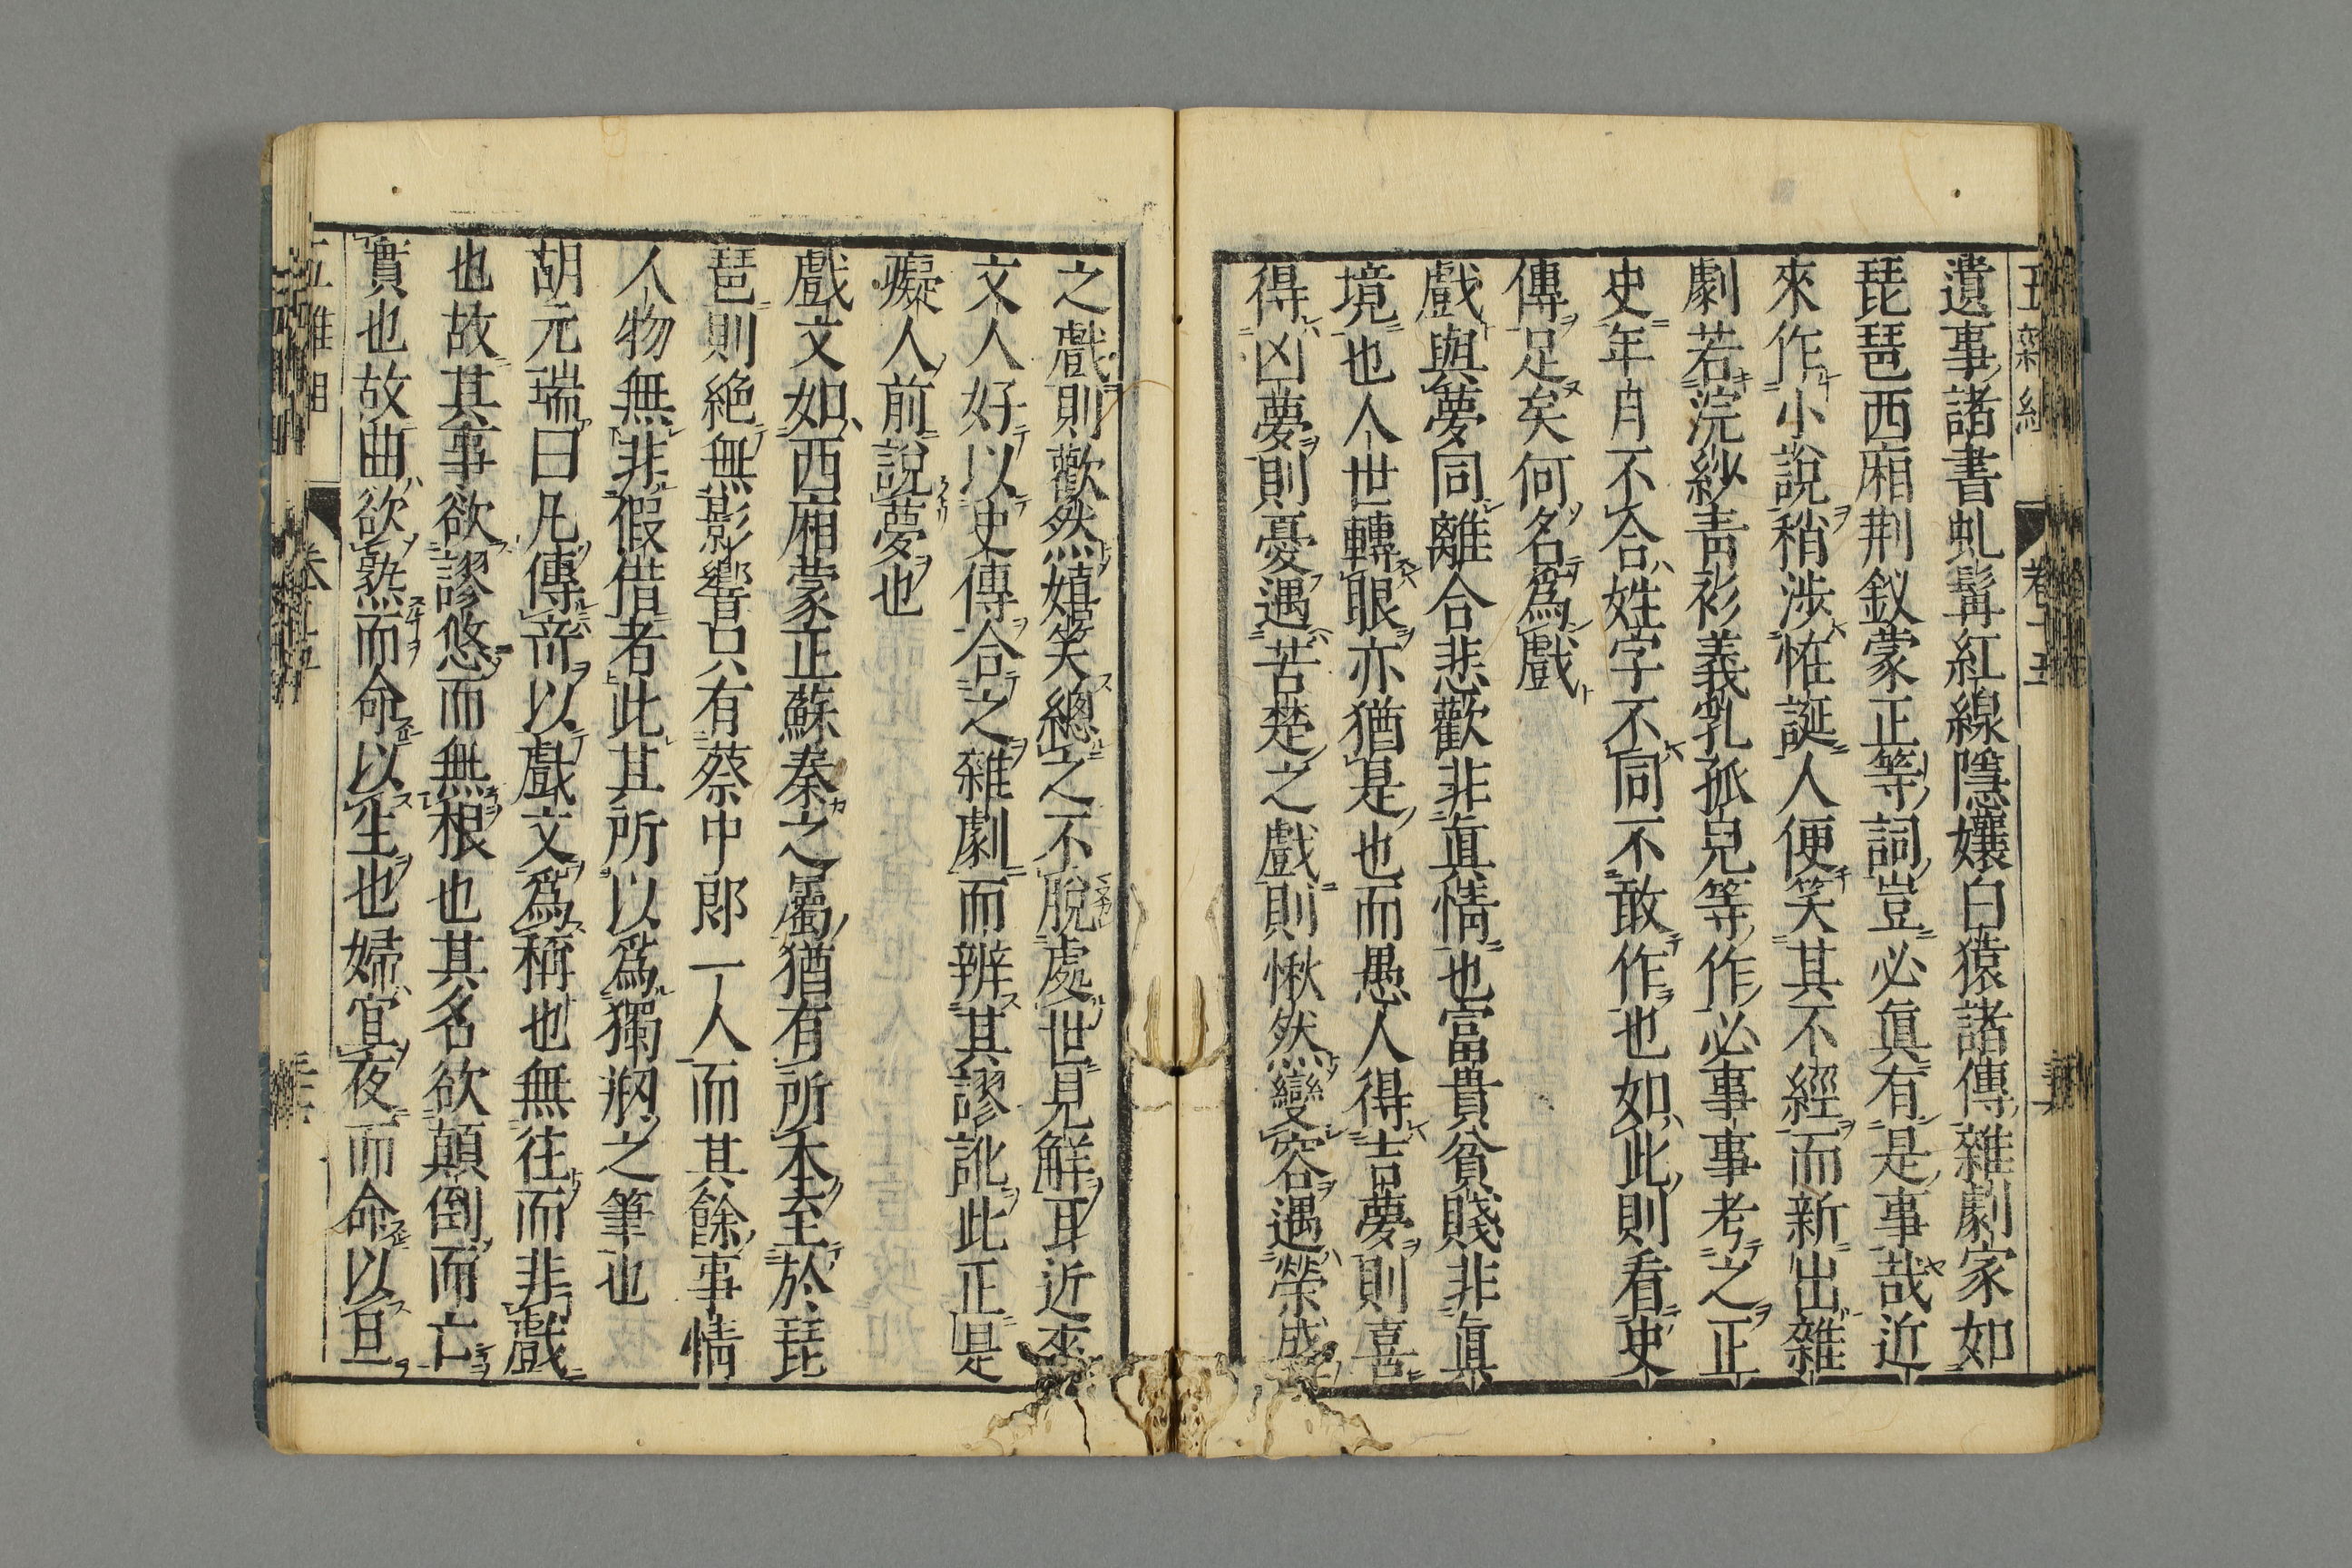 遺事諸書虬髯紅線隱孃白猿諸傳雜劇家如
琵琶西廂荆釵蒙正等詞豈必眞有是事哉近
來作小說稍涉恠誕人便笑其不經而新出雜
劇若浣紗靑衫義乳孤兒等作必事事考之正
史年月不合姓字不同不敢作也如此則看史
傳足矣何名爲戲
戲與夢同離合悲歡非眞情也富貴貧賤非眞
境也人世轉眼亦猶是也而愚人得吉夢則喜
得凶夢則憂遇苦楚之戲則愀然變容遇榮盛
之戲則歡然嬉笑總之不脫處世見解耳近來
文人好以史傳合之雜劇而辨其謬訛此正是
癡人前說夢也
戲文如西廂蒙正蘇秦之屬猶有所本至於琵
琶則絶無影響只有蔡中郎一人而其餘事情
人物無非假借者此其所以爲獨剏之筆也
胡元瑞曰凡傳竒以戲文爲稱也無往而非戲
也故其事欲謬悠而無根也其名欲顛倒而亡
實也故曲欲熟而命以生也婦宜夜而命以旦